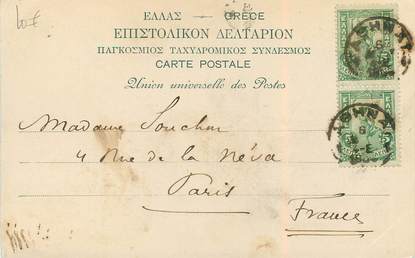 10€
ΕΛΛΑΣ — GRÈCE
ΕΠΙΣΤΟΛΙΚΟΝ ΔΕΛΤΑΡΙΟΝ
ΠΑΓΚΟΣΜΙΟΣ ΤΑΧΥΔΡΟΜΙΚΟΣ ΣΥΝΔΕΣΜΟΣ
CARTE POSTALE
Union universelle des Postes
Madame Souchon
4 Rue de la Néva
Paris
France